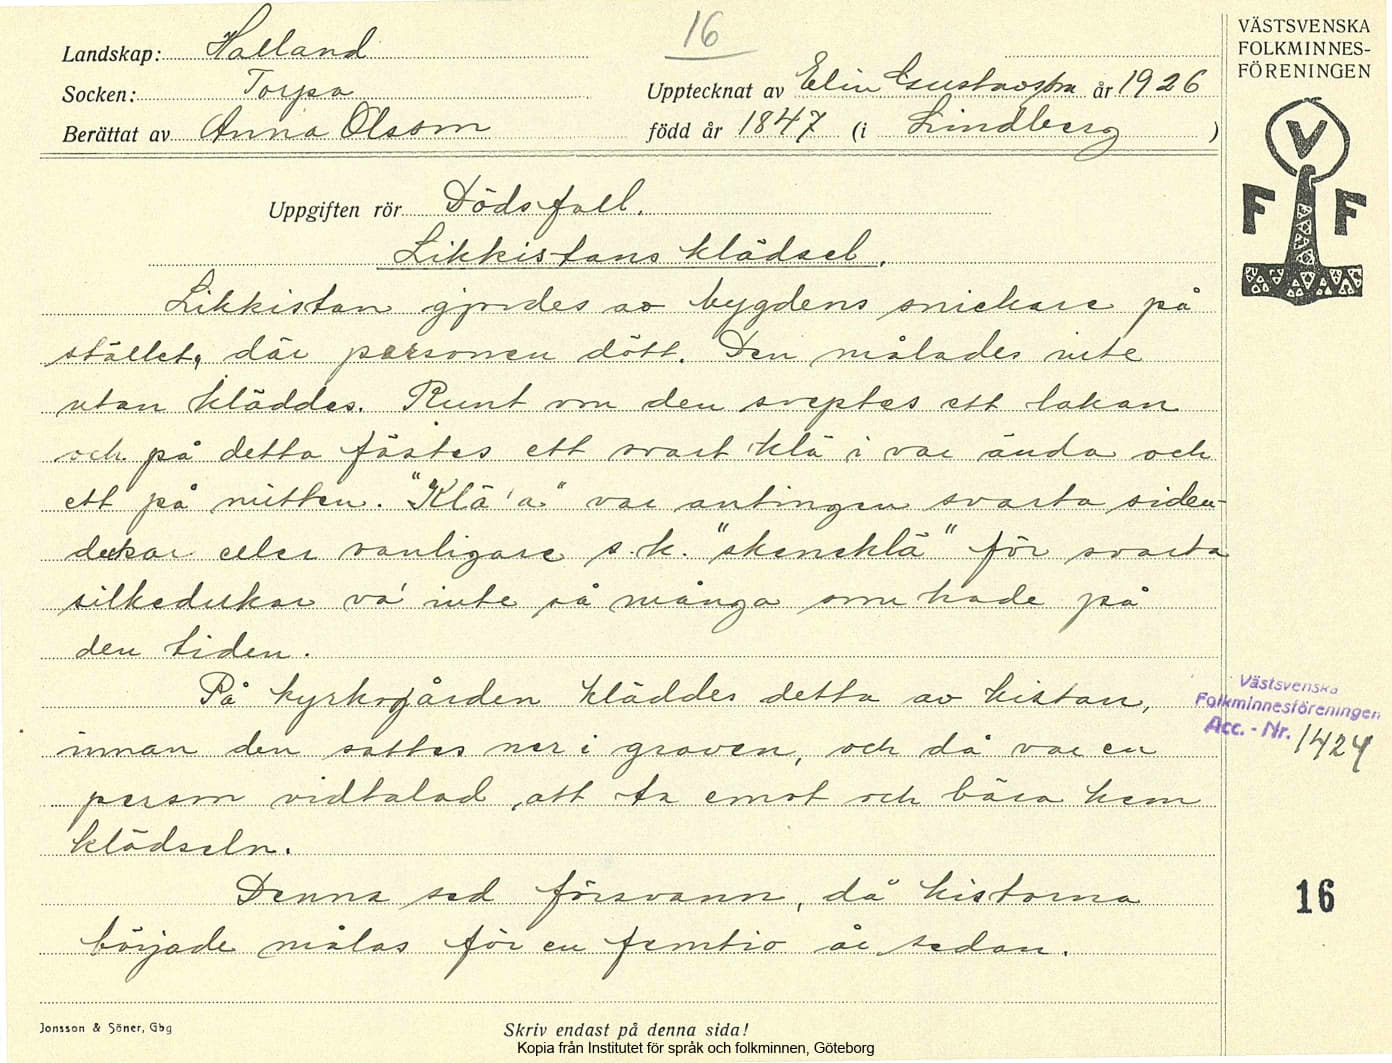 16
Landskap: Halland
Socken: Torpa
Upptecknat av Elin Gustavsson år 1926
Berättat av Anna Olsson
född år 1847 (i Lindberg )
VÄSTSVENSKA
FOLKMINNES-
FÖRENINGEN
V
F F
Uppgiften rör Dödsfall.
Likkistans klädsel.
Likkistan gjordes av bygdens snickare på
stället, där personen dött. Den målades inte
utan kläddes. Runt om den sveptes ett lakan
och på detta fästes ett svart klä i var ända och
ett på mitten. "Klä'a" var antingen svarta siden-
dukar eller vanligare s.k. "skeneklä" för svarta
silkedukar va' inte så många som hade på
den tiden.
På kyrkogården kläddes detta av kistan,
innan den sattes ner i graven, och då var en
person vidtalad, att ta emot och bära hem
klädseln.
Denna sed försvann, då kistorna
började målas för en femtio år sedan.
Västsvenska
Folkminnesföreningen
Acc. - Nr. 1424
16
Jonsson & Söner, Gbg
Skriv endast på denna sida!
Kopia från Institutet för språk och folkminnen, Göteborg